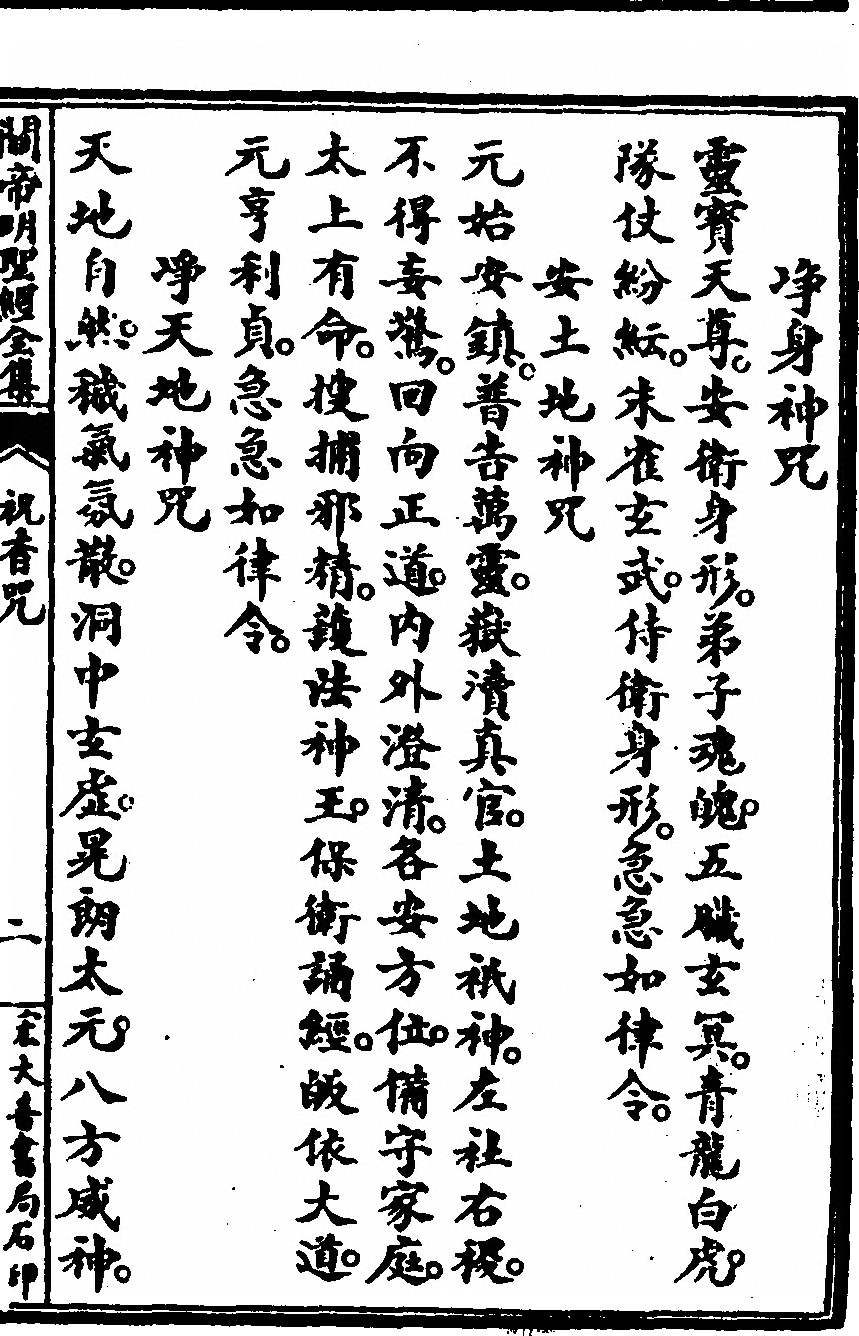 淨身神咒
靈寶天尊。安衛身形。弟子魂魄。五臟玄冥。青龍白虎。
隊仗紛紜。朱雀玄武。侍衛身形。急急如律令。
安土地神咒
元始安鎮。普告萬靈。嶽瀆真官。土地祇神。左社右稷。
不得妄驚。回向正道。內外澄清。各安方位。備守家庭。
太上有命。搜捕邪精。護法神王。保衛誦經。皈依大道。
元亨利貞。急急如律令。
淨天地神咒
天地自然。穢氣氛散。洞中玄虛。晃朗太元。八方威神。
關帝明聖經全集
祝香咒
二
宏大善書局石印